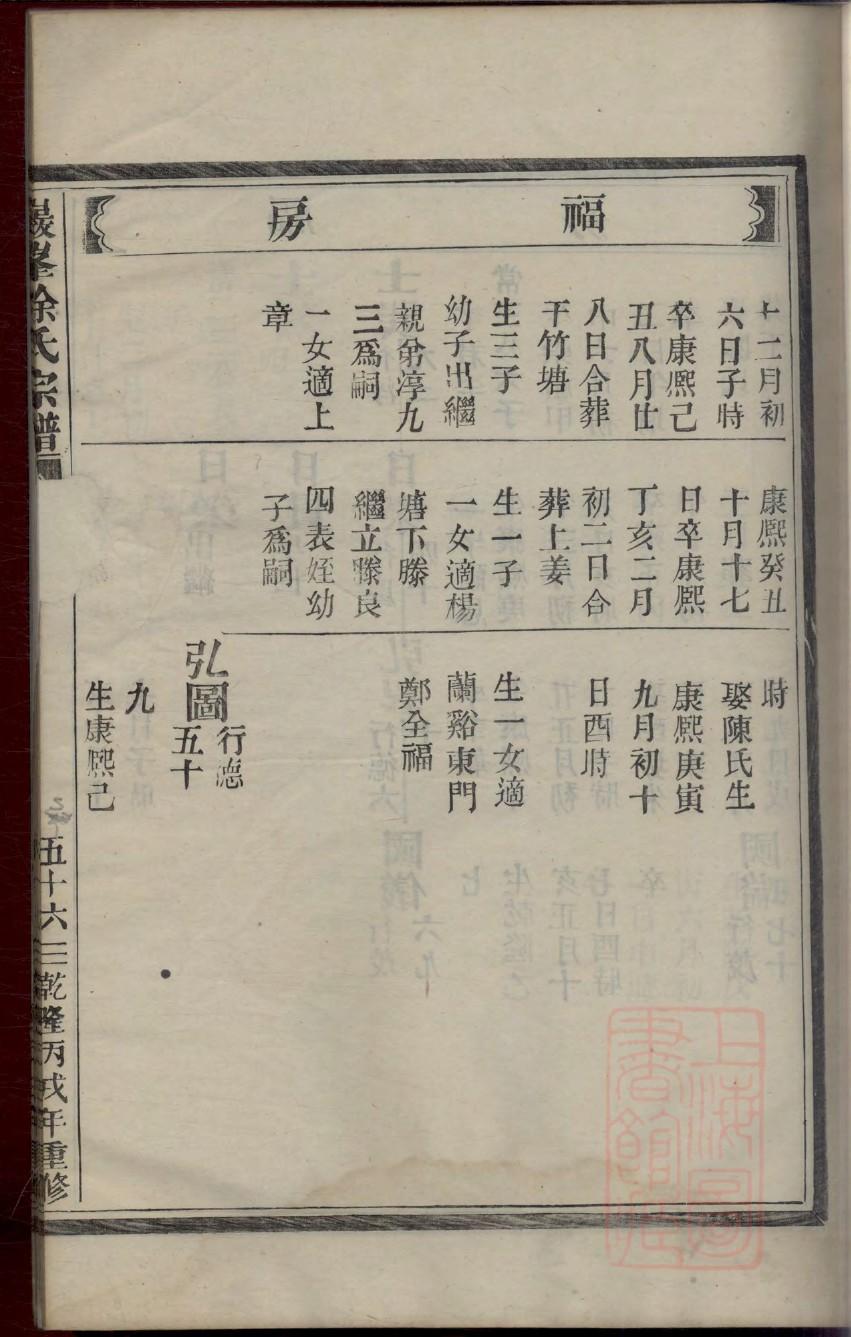 福房
十二月初
六日子時
卒康熙己
丑八月廿
八日合葬
干竹塘
生三子
幼子出繼
親弟淳九
三爲嗣
一女適上
章
康熙癸丑
十月十七
日卒康熙
丁亥二月
初二日合
葬上姜
生一子
一女適楊
塘下滕
繼立滕良
四表姪幼
子爲嗣
時
娶陳氏生
康熙庚寅
九月初十
日酉時
生一女適
蘭谿東門
鄭全福
弘圖
行德
五十
九
生康熙己
巖峯徐氏宗譜
五十六
乾隆丙戌年重修
上海圖書館藏